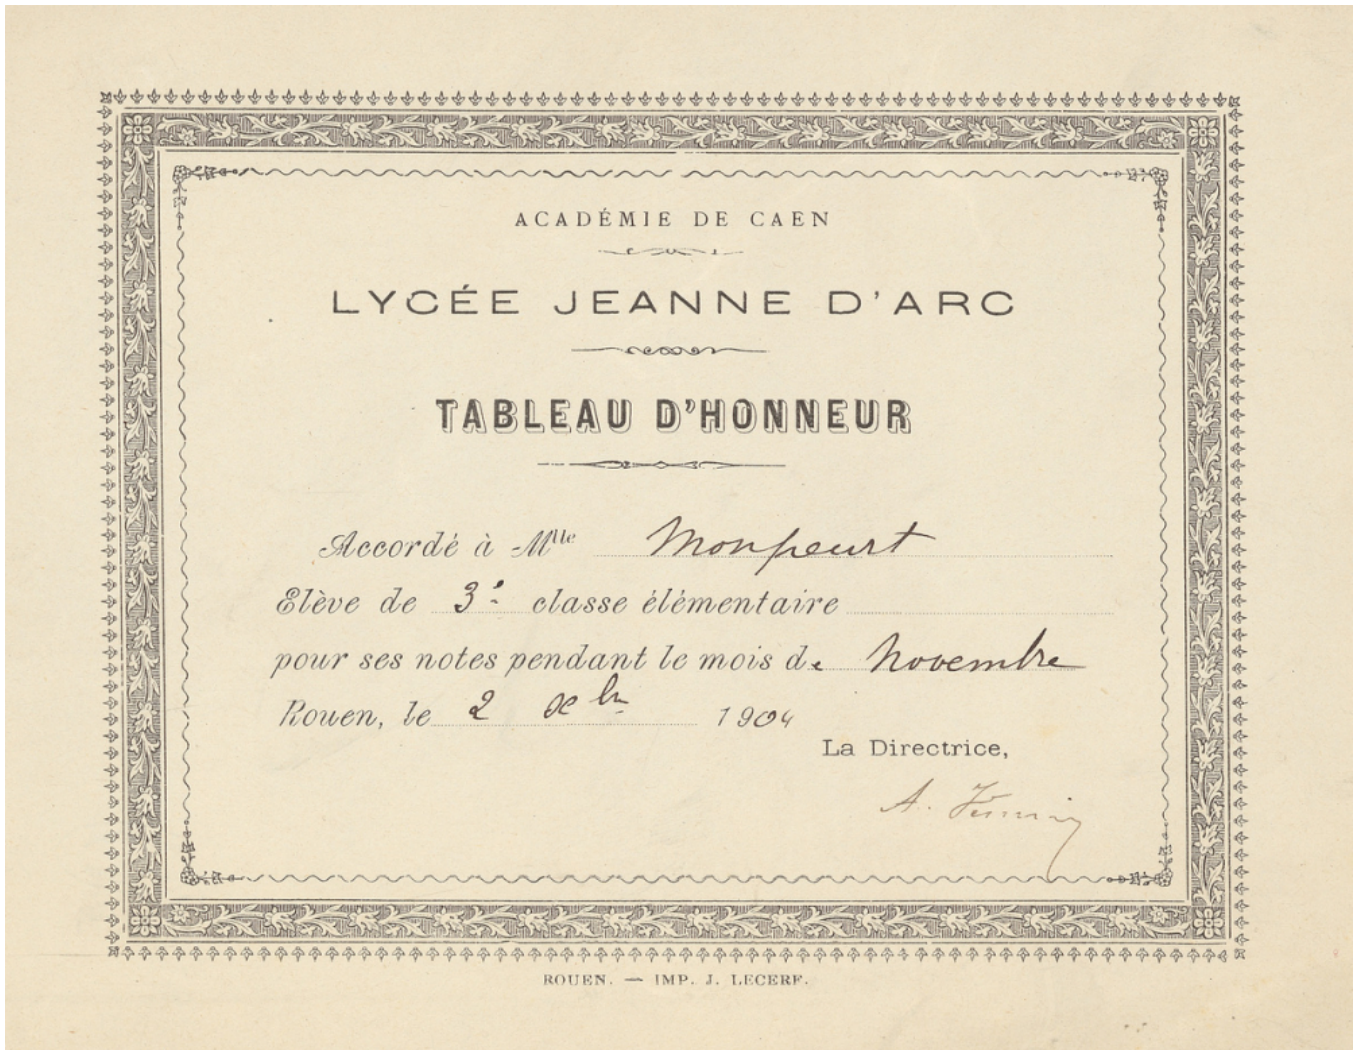 ACADÉMIE DE CAEN
LYCÉE JEANNE D'ARC
TABLEAU D'HONNEUR
Accordé à Mlle Monpeurt
Elève de 3e classe élémentaire
pour ses notes pendant le mois de Novembre
Rouen, le 2 Xbre 1904
La Directrice,
A.
ROUEN. — IMP. J. LECERF.